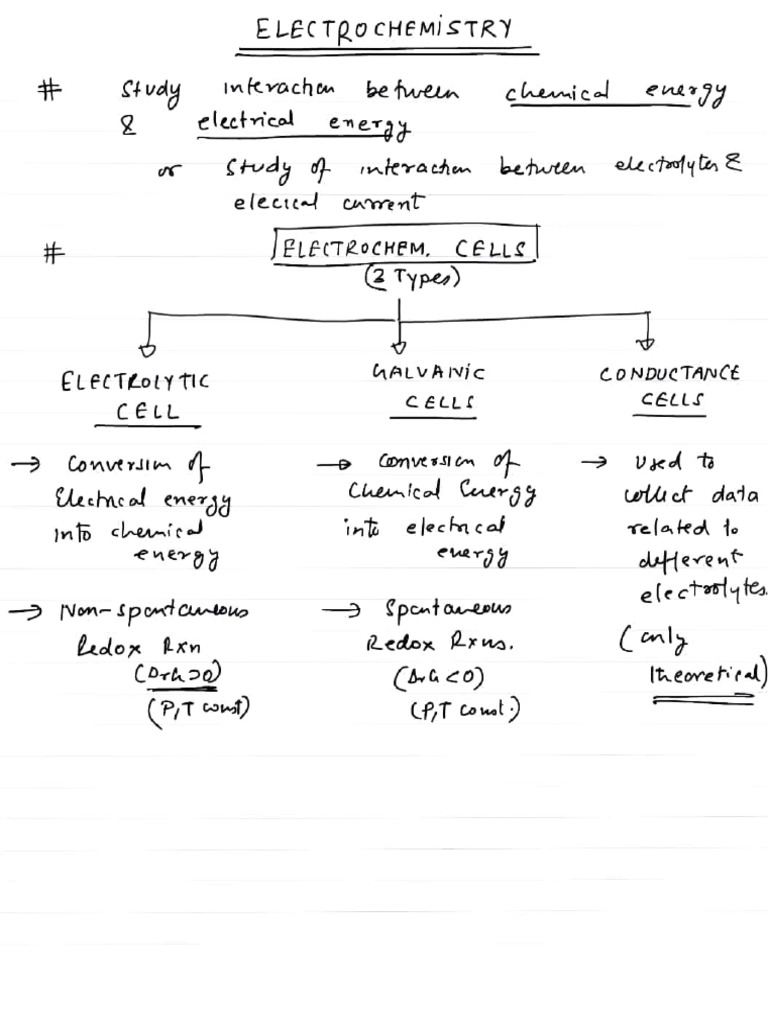 ELECTROCHEMISTRY
# Study interaction between chemical energy
& electrical energy
or study of interaction between electrolytes &
elecical current
# ELECTROCHEM. CELLS
(3 Types)
ELECTROLYTIC
CELL
→ Conversion of
Electrical energy
into chemical
energy
→ Non-spontaneous
Redox Rxn
(ΔrG>0)
(P,T const)
GALVANIC
CELLS
→ Conversion of
Chemical Energy
into electrical
energy
→ Spontaneous
Redox Rxns.
(ΔrG<0)
(P,T const.)
CONDUCTANCE
CELLS
→ Used to
collect data
related to
different
electrolytes.
(only
theoretical)